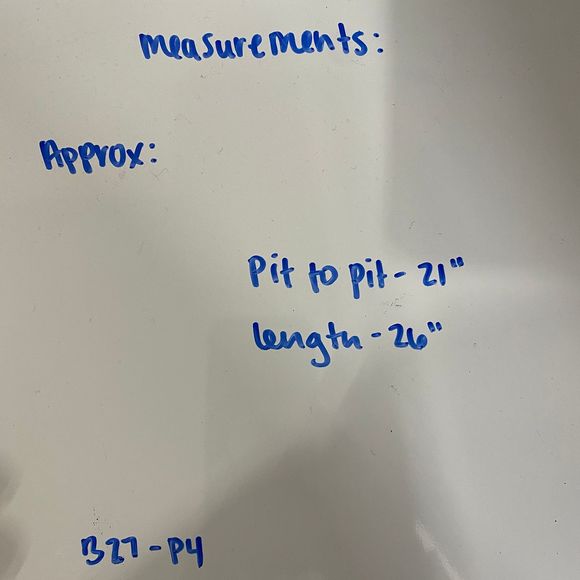 measurements:
Approx:
Pit to pit - 21"
length - 26"
B27 - P4